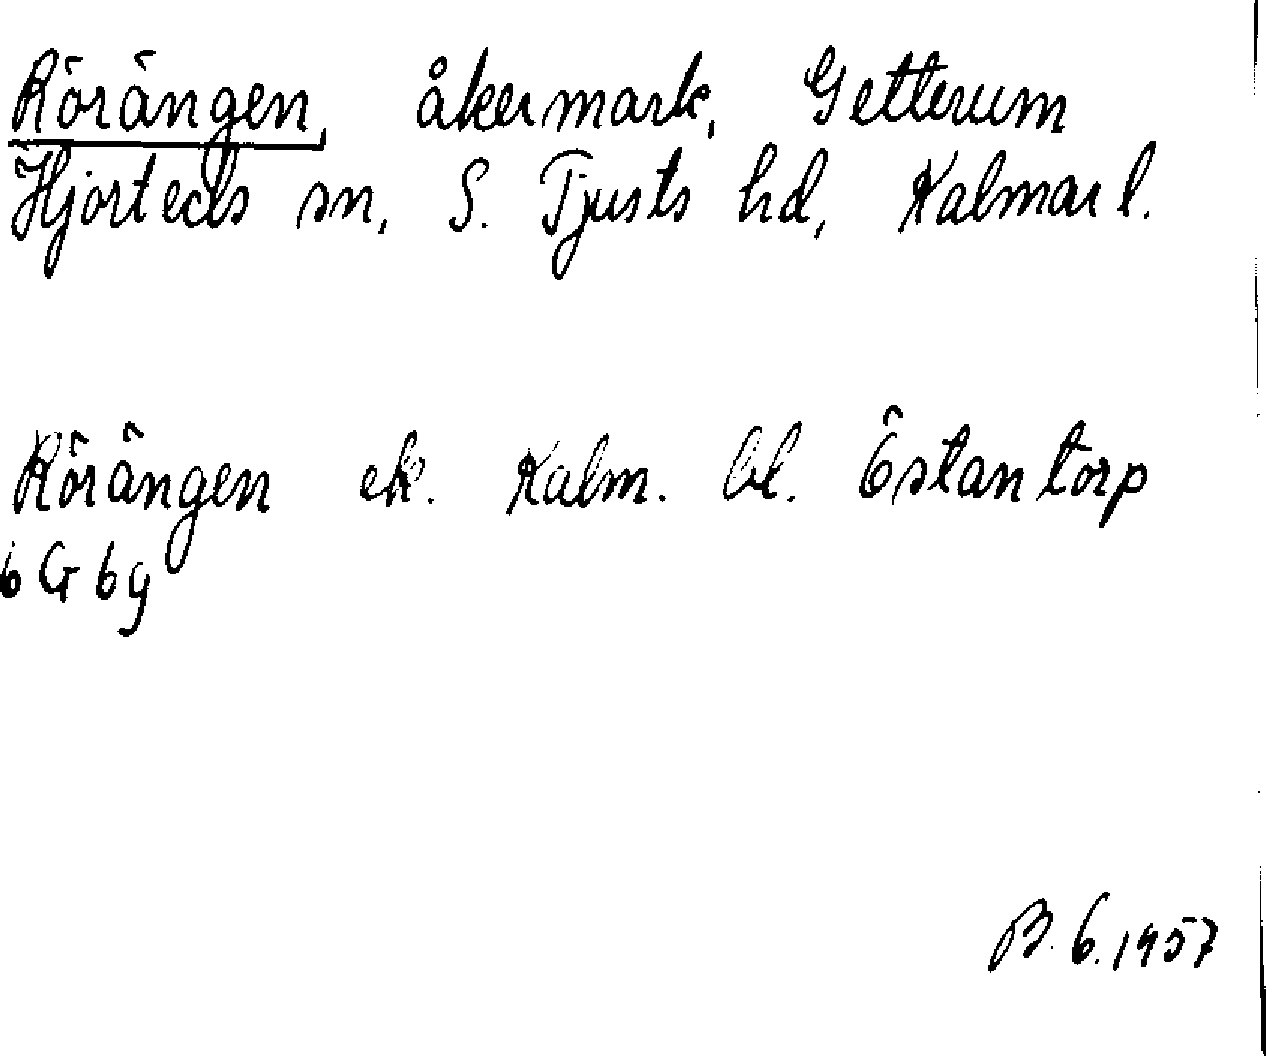 Rörängen, åkermark, Getterum
Hjorteds sn, S. Tjusts hd, Kalmar l.
Rörängen ek. Kalm. bl. Östantorp
6 G 6g
B. G. 1957